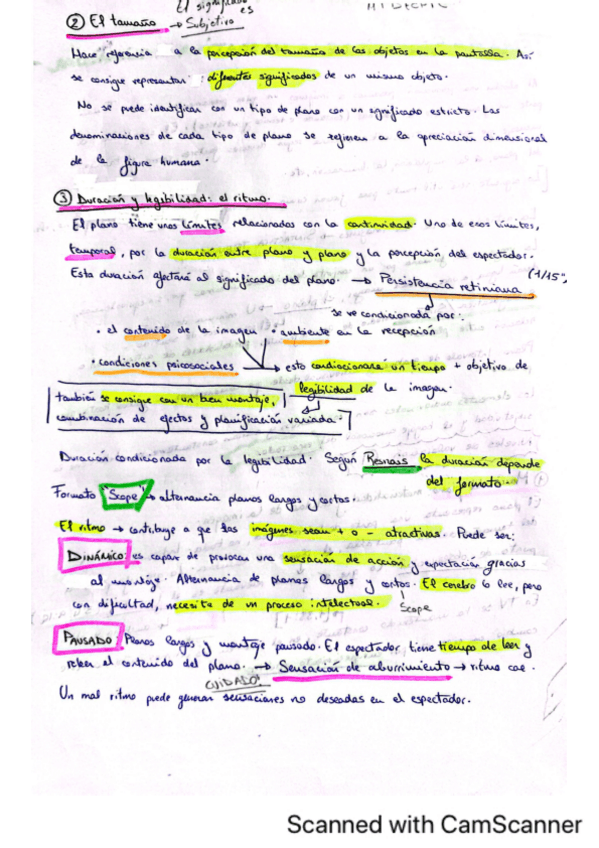 El significado
② El tamaño → es Subjetivo
Hace referencia a la percepción del tamaño de los objetos en la pantalla. Así
se consigue representar: diferentes significados de un mismo objeto.
No se puede identificar con un tipo de plano con un significado estricto. Las
denominaciones de cada tipo de plano se refieren a la apreciación dimensional
de la figura humana.
③ Duración y legibilidad: el ritmo.
El plano tiene unos límites relacionados con la continuidad. Uno de esos límites,
temporal, por la duración entre plano y plano y la percepción del espectador.
Esta duración afectará al significado del plano. → Persistencia retiniana (1/15")
se ve condicionada por:
• el contenido de la imagen • ambiente en la recepción
• condiciones psicosociales → esto condicionará un tiempo + objetivo de
legibilidad de la imagen.
también se consigue con un buen montaje,
combinación de efectos y planificación variada.
Duración condicionada por la legibilidad. Según Resnais la duración depende
del formato
Formato "Scope" → alternancia planos largos y cortos.
El ritmo → contribuye a que las imágenes sean + o - atractivas. Puede ser:
DINÁMICO: es capaz de provocar una sensación de acción y expectación gracias
al montaje. Alternancia de planos largos y cortos. El cerebro lo lee, pero
con dificultad, necesita de un proceso intelectual. Scope
PAUSADO: Planos largos y montaje pausado. El espectador tiene tiempo de leer y
releer el contenido del plano. → Sensación de aburrimiento → ritmo cae.
CUIDADO!
Un mal ritmo puede generar sensaciones no deseadas en el espectador.
Scanned with CamScanner